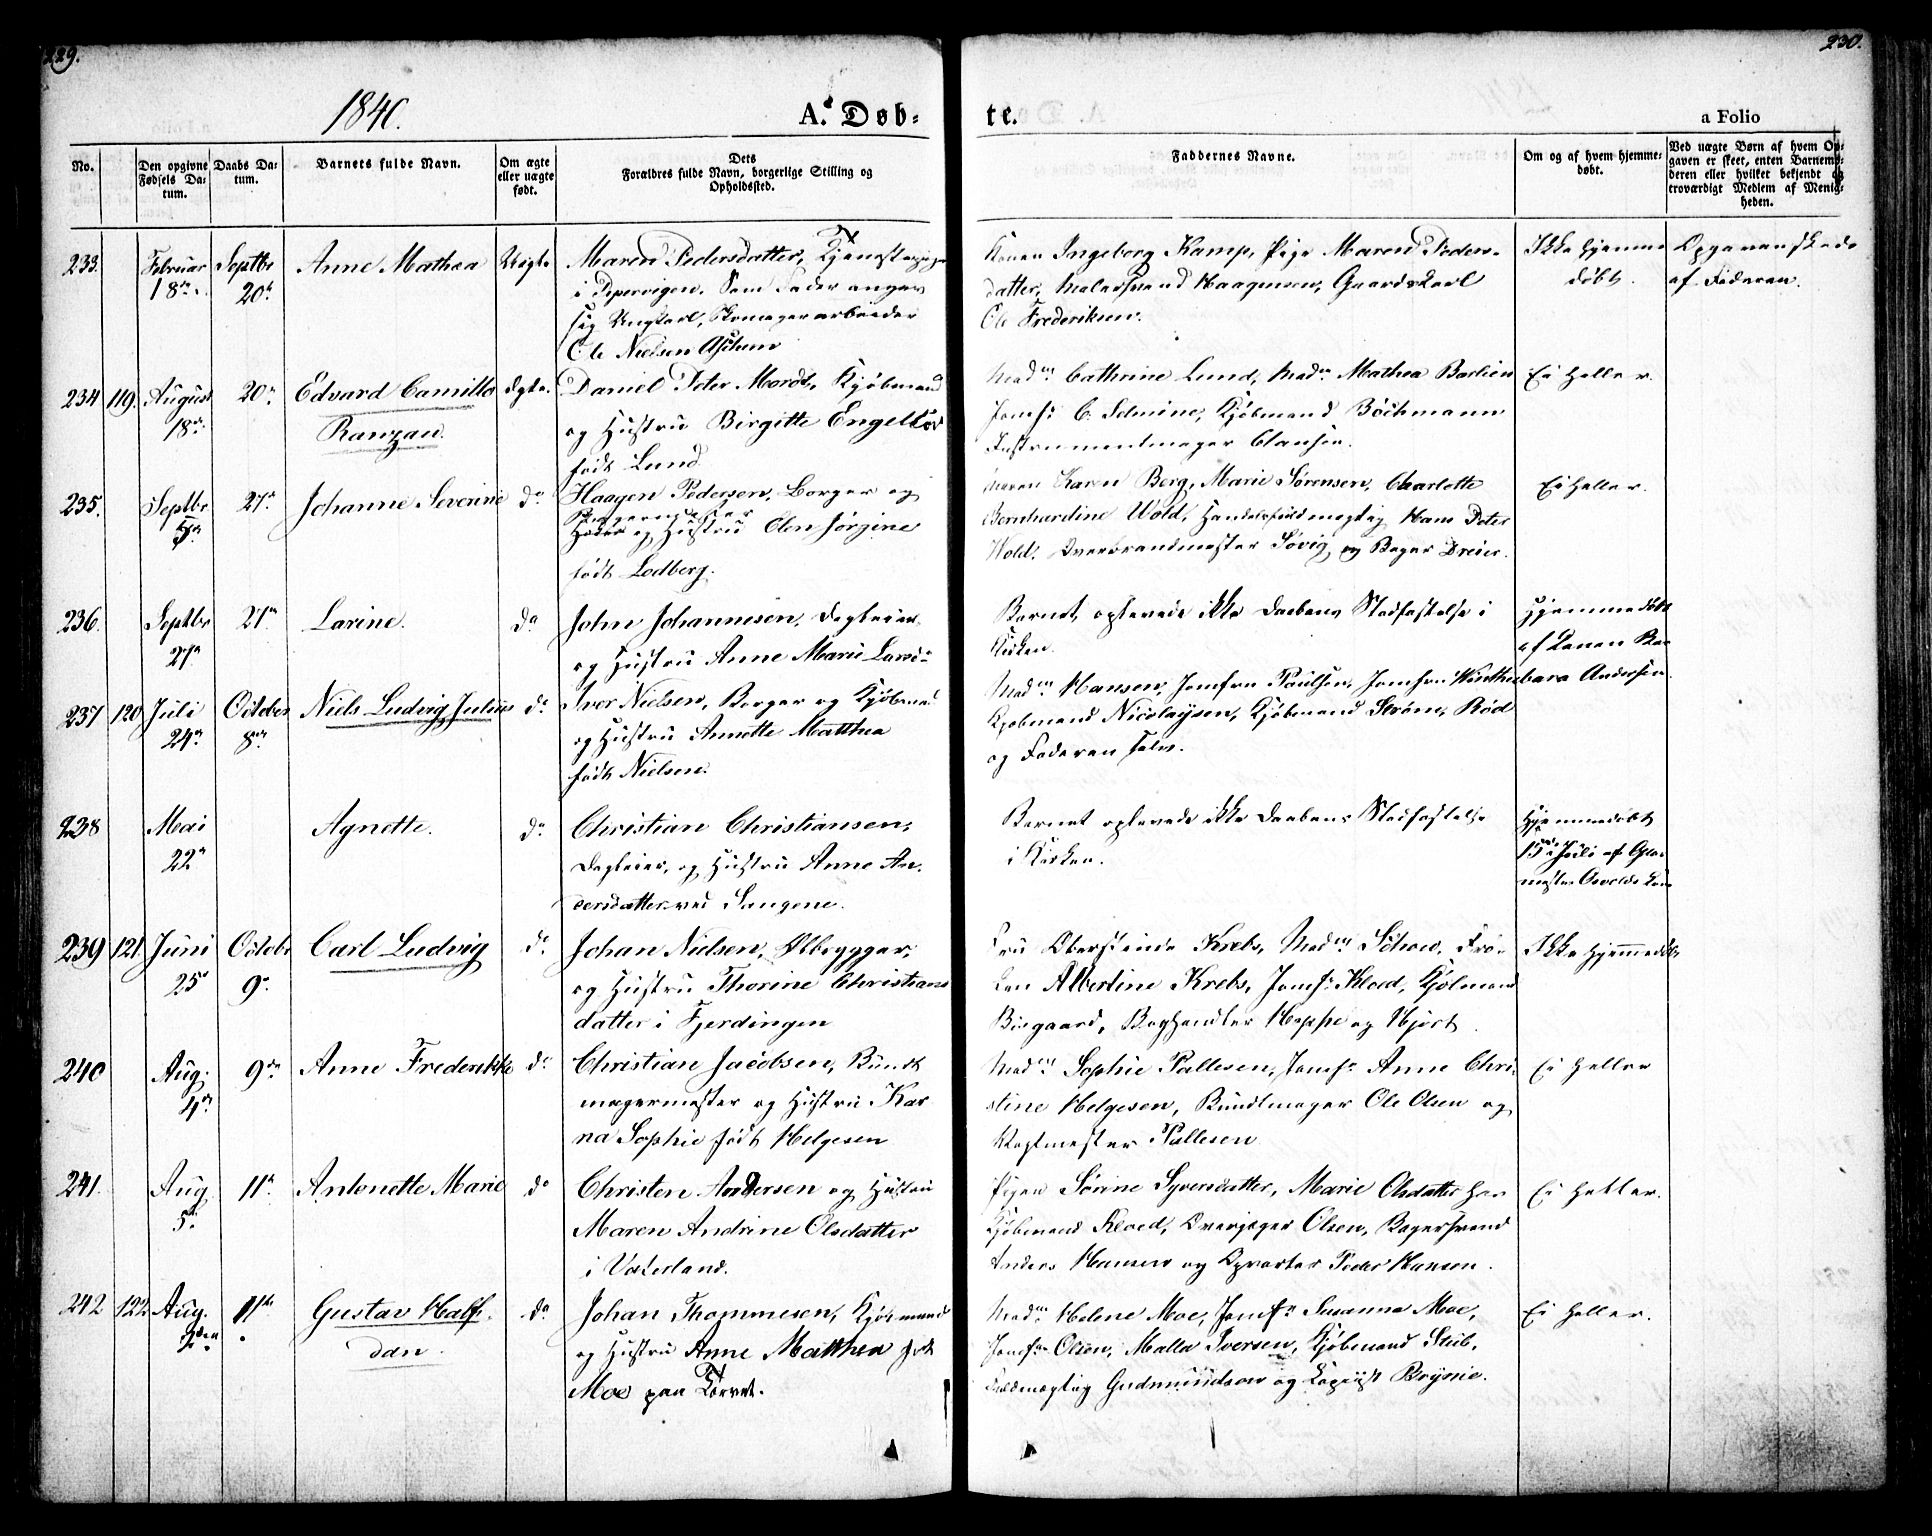 229.
230.
1840.
A. Døb-
te.
a Folio
No.
Den opgivne Fødsels Datum.
Daabs Datum.
Barnets fulde Navn.
Om ægte eller uægte født.
Dets Forældres fulde Navn, borgerlige Stilling og Opholdssted.
Faddernes Navne.
Om og af hvem hjemmedøbt.
Ved uægte Børn af hvem Opgaven er skeet, enten Barnemoderen eller hvilket bekjendt og troværdigt Medlem af Menigheden.
233. Februar Septbr Anne Mathea Uægte Maren Pedersdatter, Tjenestepige
18de 20de i Pipervigen. Som Fader angav
sig Ungkarl, Skomagerarbeider
Ole Nielsen
Konen Ingeborg Kamp, Pige Maren Peders-
datter, Malersvend Haagensen, Gaardskarl
Ole Frederiksen.
Ikke hjemme
døbt.
Opgaven skede
af Faderen.
234 119. August 20de Edvard Camillo Ægte. Daniel Peter Mordt, Kjøbmand
18de Ranzau. og Hustru Birgitte Engelke
født Lund
Madm Cathrine Lund, Madm Mathea Barlien
Jomfr C. Selmine, Kjøbmand Böckmann
Instrumentmager Clausen.
Ei heller.
235. Septbr 27de Johanne Severine do Haagen Pedersen, Borger og
og Hustru Olen Jørgine
født Lodberg.
Karen Berg, Marie Sørensen, Charlotte
Bernhardine Wold, Handelsfuldmægtig Hans Peter
Wold, Overbrandmester Søvig og Bager Dreier.
Ei heller.
236. Septbr 27de Larine. do John Johannesen, Dagleier
27de og Hustru Anne Marie Larsdr
Barnet oplevede ikke Daabens Stadfæstelse i
Kirken.
Hjemmedøbt
af Konen Bar
bara Andersen.
237 120 Juli October Niels Ludvig Julius do Iver Nielsen, Borger og Kjøbmand
24de 8de og Hustru Annette Matthea
født Nielsen.
Madm Hansen, Jomfru Paulsen, Jomfru Winther
Kjøbmand Nicolaysen, Kjøbmand Strøm, Rød
og Faderen selv.
238 Mai Agnette. do Christian Christiansen,
22de Dagleier, og Hustru Anne An-
dersdatter ved Saugene.
Barnet oplevede ikke Daabens Stadfæstelse
i Kirken.
Hjemmedøbt
15de Juli af
mester Osvolds Kone
239 121. Juni Octobr Carl Ludvig do Johan Nielsen, Ølbrygger,
25de 9de og Hustru Thorine Christians
datter i Fjerdingen
Fru Oberstinde Krebs, Madm Schou, Frø-
ken Albertine Krebs, Jomfr Kloed, Kjøbmand
Biegaard, Boghandler Hoppe og Hjort.
Ikke hjemmedøbt
240 Aug. 9de Anne Frederikke do Christian Jacobsen, Bundt
4de magermester og Hustru Kar
na Sophie født Helgesen
Madm Sophie Pallesen, Jomfr Anne Chri-
stine Helgesen, Bundtmager Ole Olsen og
Pallesen
Ei heller
241. Aug. 11te Antonette Marie do Christen Andersen og Hustru
5te Maren Andrine Olsdatter
i Vaterland.
Pigen Sørine Syversdatter, Marie Olsdatter hos
Kjøbmand Kloed, Overjæger Olsen, Bagersvend
Anders Hansen og Opvarter Peder Hansen.
Ei heller.
242 122. Aug. 11te Gustav Half- do Johan Thommesen, Kjøbmand
dan. og Hustru Anne Matthea født
Moe paa Torvet.
Madm Helene Moe, Jomfr Susanna Moe,
Jomfr Olsen, Malla Iversen, Kjøbmand Stub,
Fuldmægtig Gudmundsen og Copiist Brynie.
Ei heller.